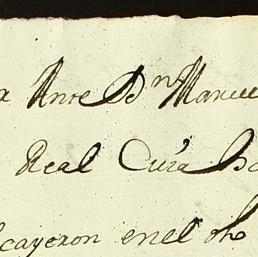 Ante Dn Manue
Real Cura
cayeron en el dho